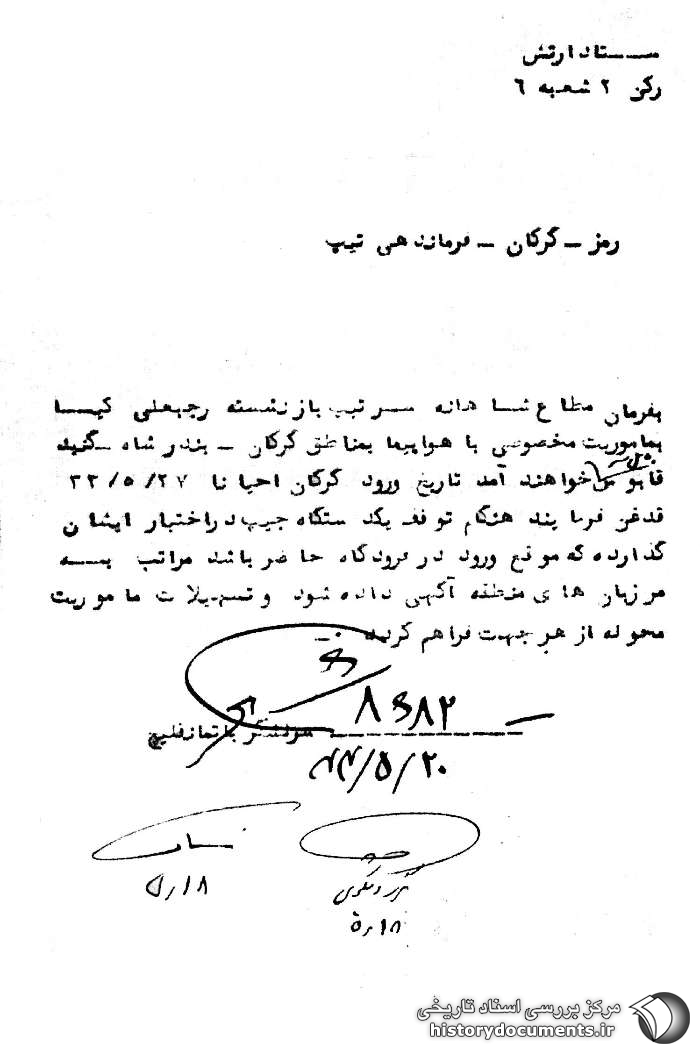 ستاد ارتش
رکن ۲ شعبه ٦
رمز – گرگان – فرماندهی تیپ
بفرمان مطاع شاهانه سرتیپ بازنشسته رجبعلی کیا
بماموریت مخصوصی با هواپیما بمناطق گرگان – بندر شاه – گنبد
قابوس خواهند آمد تاریخ ورود گرگان احیانا ۳۲/۵/۲۷
قدغن فرمایند هنگام توقف یکدستگاه جیپ در اختیار ایشان
گذارده که موقع ورود در فرودگاه حاضر باشد مراتب به
مرزبان های منطقه آگهی داده شود و تسهیلات ماموریت
محوله از هر جهت فراهم گردد
سرلشگر باتمانقلیچ
۳۲/۵/۲۰
۵/۱۸
۵/۱۸
مرکز بررسی اسناد تاریخی
historydocuments.ir